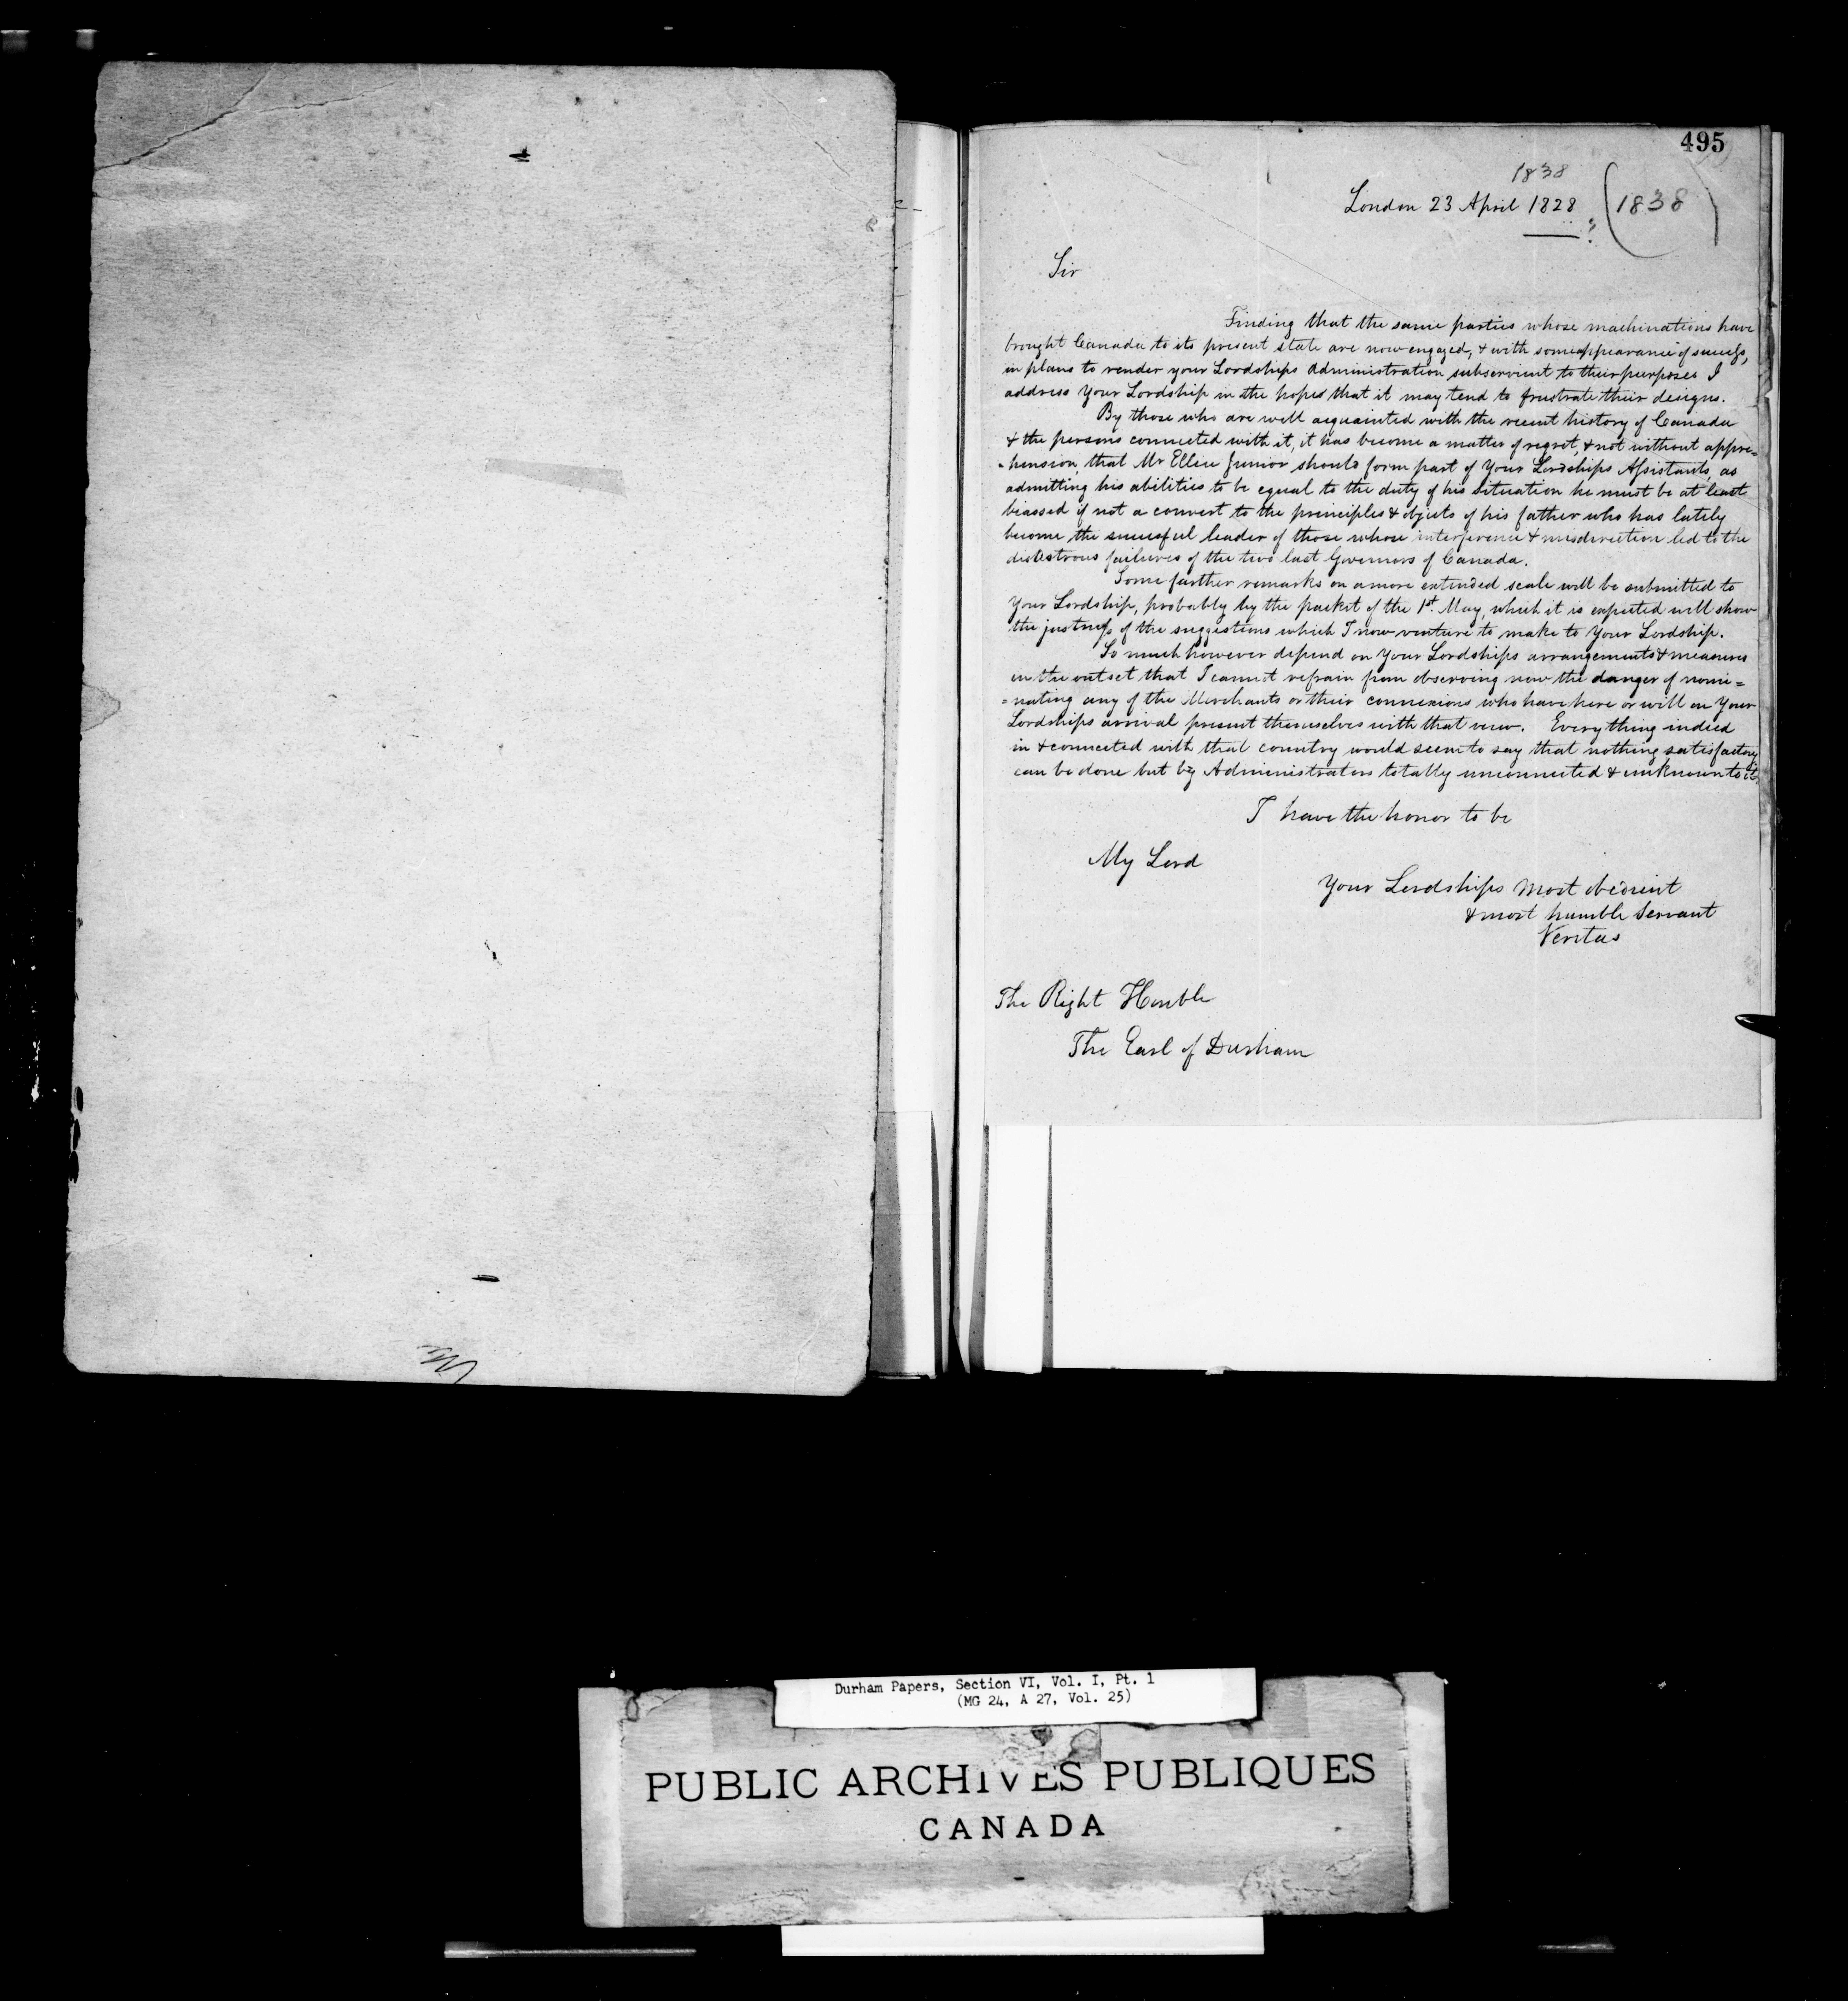 495
1838
London 23 April 1828 ? (1838)
Sir
Finding that the same parties whose machinations have
brought Canada to its present state are now engaged, & with some appearance of success,
in plans to render your Lordships Administration subservient to their purposes I
address Your Lordship in the hopes that it may tend to frustrate their designs.
By those who are well acquainted with the recent history of Canada
& the persons connected with it, it has become a matter of regret, & not without appre=
=hension, that Mr Ellice Junior should form part of Your Lordships Assistants, as
admitting his abilities to be equal to the duty of his situation he must be at least
beassed if not a convert to the principles & objects of his father who has lately
become the sucessful leader of those whose interference & misdirection led to the
disastrous failures of the two last Governors of Canada.
Some further remarks on a more extended scale will be submitted to
Your Lordship, probably by the packet of the 1st. May, which it is expected will show
the justness of the suggestions which I now venture to make to Your Lordship.
So much however depend on Your Lordships arrangements & measures
in the outset that I cannot refrain from observing now the danger of nomi=
=nating any of the Merchants or their connexions who have here or will on Your
Lordships arrival present themselves with that view. Everything indeed
in & connected with that country would seem to say that nothing satisfactory
can be done but by Administrators totally unconnected & unknown to it.
I have the honor to be
My Lord
Your Lordships most obedient
& most humble Servant
Veritas
The Right Honble
The Earl of Durham
Durham Papers, Section VI, Vol. I, Pt. 1
(MG 24, A 27, Vol. 25)
PUBLIC ARCHIVES PUBLIQUES
CANADA